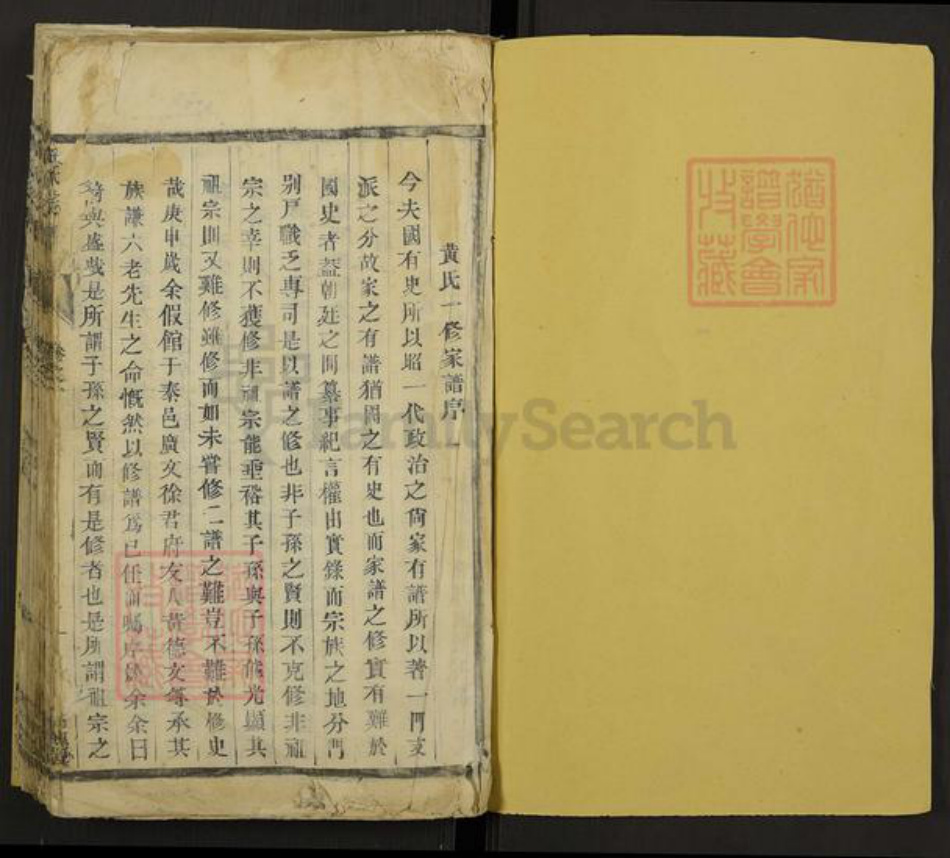 黃氏一修家譜序
今夫國有史所以昭一代政治之尙家有譜所以著一門支
派之分故家之有譜猶國之有史也而家譜之修實有難於
國史者葢朝廷之間纂事紀言權由實錄而宗族之地分門
别戸職乏專司是以譜之修也非子孫之賢則不克修非祖
宗之幸則不獲修非祖宗能垂裕其子孫與子孫能光顯其
祖宗則又難修雖修而如未嘗修二譜之難豈不難於修史
哉庚申歲余假館于奉邑廣文徐君府友人黃德文等承其
族謙六老先生之命慨然以修譜爲己任而囑序於余余曰
猗與盛哉是所謂子孫之賢而有是修者也是所謂祖宗之
猶他家
譜學會
收藏
FamilySearch